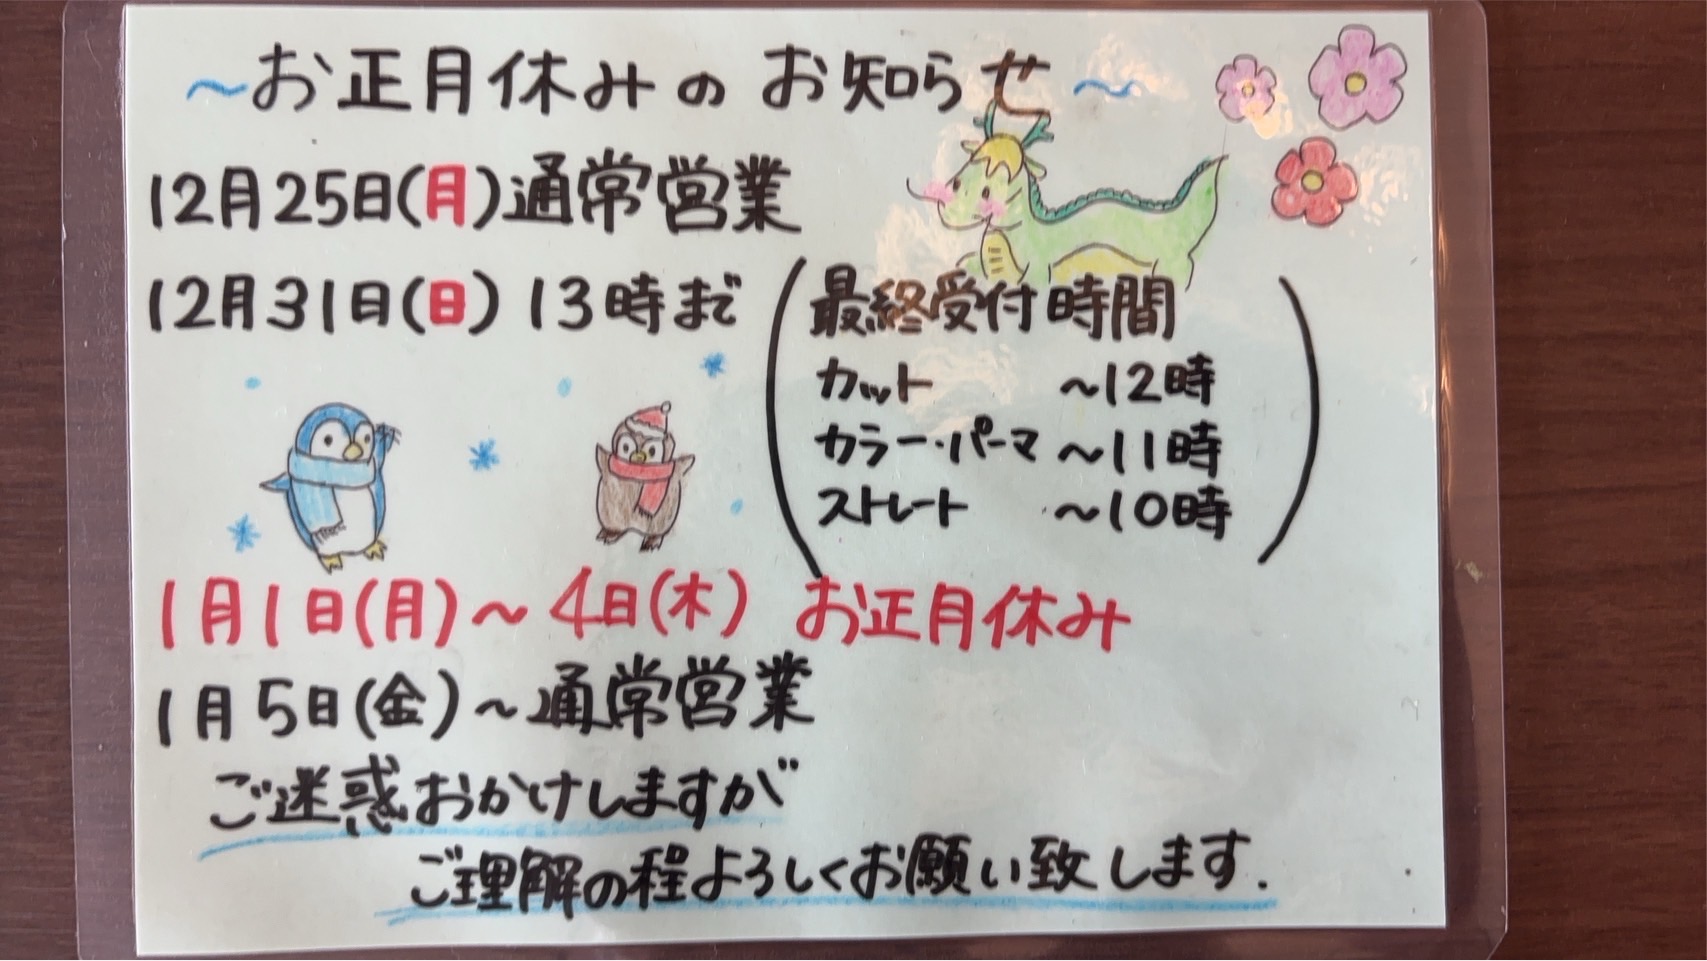 ～お正月休みのお知らせ～
12月25日(月)通常営業
12月31日(日) 13時まで
(最終受付時間
カット ～12時
カラー・パーマ ～11時
ストレート ～10時)
1月1日(月)～4日(木) お正月休み
1月5日(金)～通常営業
ご迷惑おかけしますが
ご理解の程よろしくお願い致します.